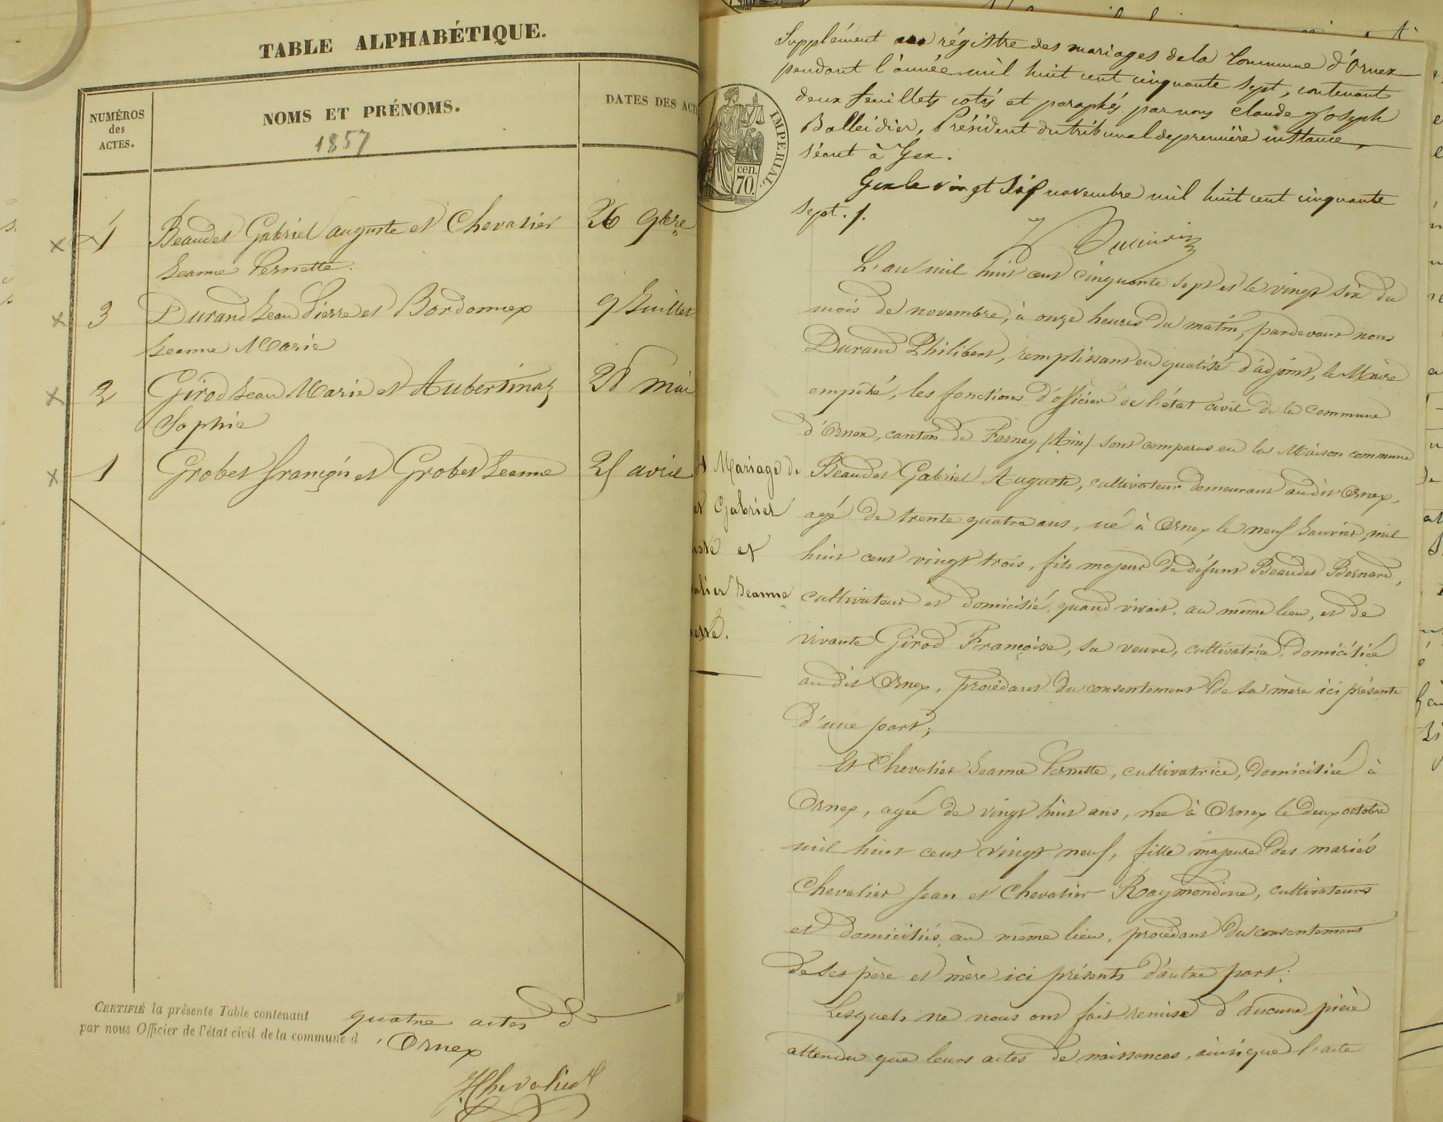 TABLE ALPHABÉTIQUE.
NUMÉROS
des
ACTES.
NOMS ET PRÉNOMS.
1857
DATES DES ACT
1 Beaudet Gabriel auguste et Chevalier 26 9bre
Jeanne Pernette.
3 Durand Jean Pierre et Bordonnex 9 Juillet
Jeanne Marie
2 Girod Jean Marie et Aubertinaz mai
Sophie
1 Grobet françois et Grobet Jeanne avril
CERTIFIÉ la présente Table contenant quatre actes
par nous Officier de l'état civil de la commune d'Ornex
JChevalier
IMPÉRIAL.
cen.
70.
Supplément au régistre des mariages de la Commune d'Ornex
pendant l'année mil huit cent cinquante sept, contenant
deux feuillets cotés et paraphés par nous Claude Joseph
Balleidier, Président du tribunal de première instance,
séant à Gex.
Gex le vingt six novembre mil huit cent cinquante
sept. /.
L'an mil huit cent cinquante sept et le vingt six du
mois de novembre, à onze heures du matin, pardevant nous
Durand Philibert, remplissant en qualité d'adjoint, le Maire
empêché, les fonctions d'officier de l'état civil de la commune
d'Ornex, canton de Ferney (Ain) sont comparus en la Maison commune
Mariage de
Gabriel
et
Jeanne
Beaudet Gabriel Auguste, cultivateur demeurant audit Ornex,
agé de trente quatre ans, né à Ornex le neuf Janvier mil
huit cent vingt trois, fils majeur de défunt Beaudet Bernard,
cultivateur et domicilié, quand vivait, au même lieu, et de
vivante Girod Françoise, sa veuve, cultivatrice, domiciliée
audit Ornex, procédant du consentement de sa mère ici présente
d'une part;
Et Chevalier Jeanne Pernette, cultivatrice, domiciliée à
Ornex, agée de vingt huit ans, née à Ornex le deux octobre
mil huit cent vingt neuf, fille majeure des mariés
Chevalier Jean et Chevalier Raymondine, cultivateurs
et domiciliés au même lieu, procédant du consentement
de ses père et mère ici présents d'autre part.
Lesquels ne nous ont fait remise d'aucune pièce
attendu que leurs actes de naissances, ainsi que l'acte